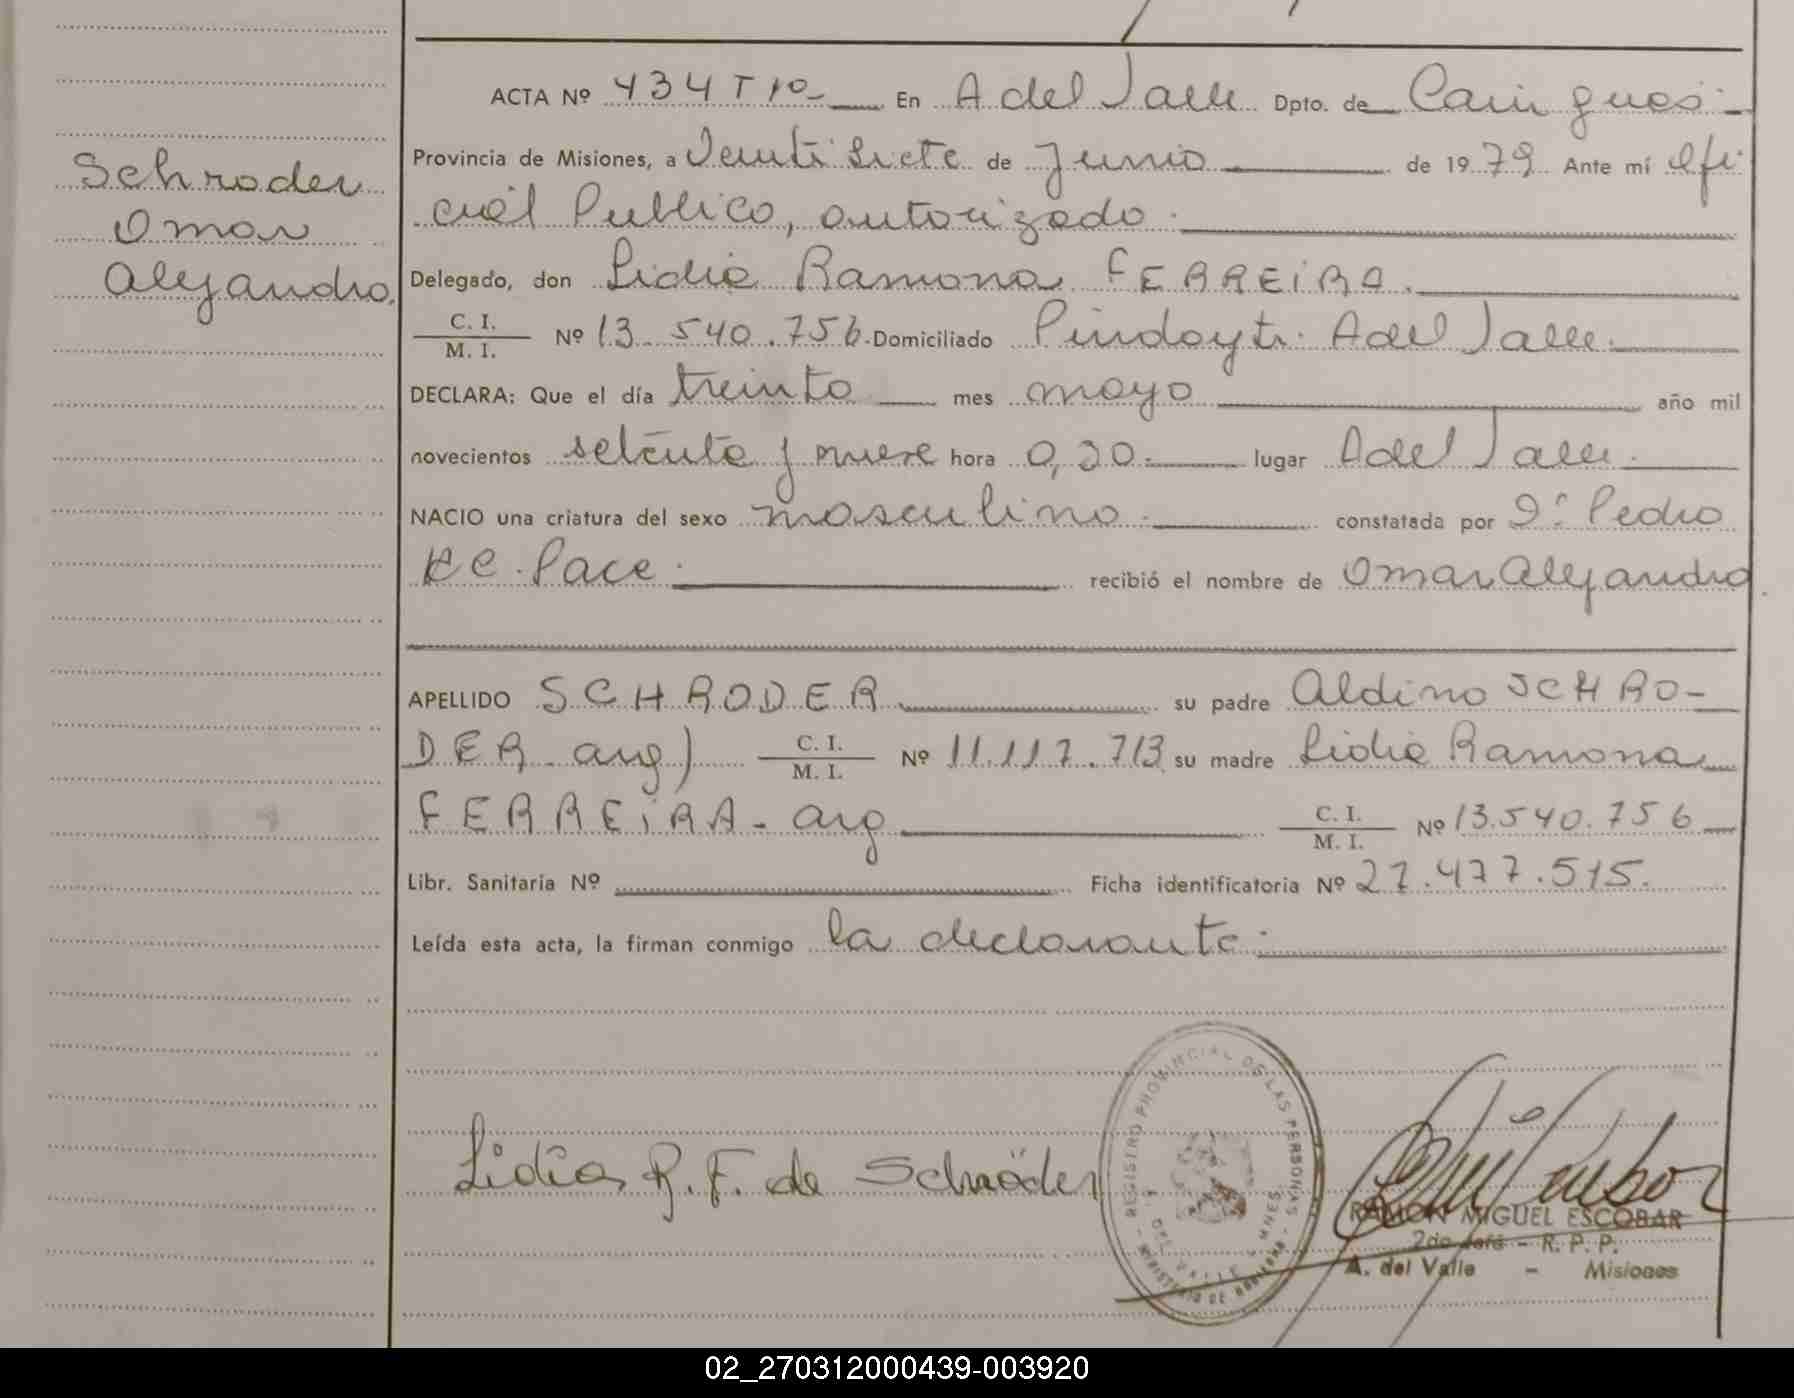 ACTA Nº 434 T 1º En A del Valle Dpto. de Cainguas
Schroder
Omar
Alejandro
Provincia de Misiones, a Veinti siete de Junio de 1979 Ante mí Ofi
cial Publico, autorizado
Delegado, don Lidia Ramona FERREIRA.
C. I.
M. I. Nº 13.540.756 Domiciliado Pindayti. A del Valle
DECLARA: Que el día treinta mes mayo año mil
novecientos setenta y nueve hora 0,20 lugar A del Valle
NACIO una criatura del sexo masculino constatada por Pedro
Pace recibió el nombre de Omar Alejandro
APELLIDO SCHRODER su padre Aldino SCHRO-
DER arg) C. I.
M. I. Nº 11.117.713 su madre Lidia Ramona
FERREIRA - arg C. I.
M. I. Nº 13.540.756
Libr. Sanitaria Nº Ficha identificatoria Nº 27.477.515.
Leída esta acta, la firman conmigo la declarante
Lidia R. F. de Schröder
REGISTRO PROVINCIAL DE LAS PERSONAS
MINISTERIO DE GOBIERNO
RAMON MIGUEL ESCOBAR
2do Jefe - R. P. P.
A. del Valle - Misiones
02_270312000439-003920